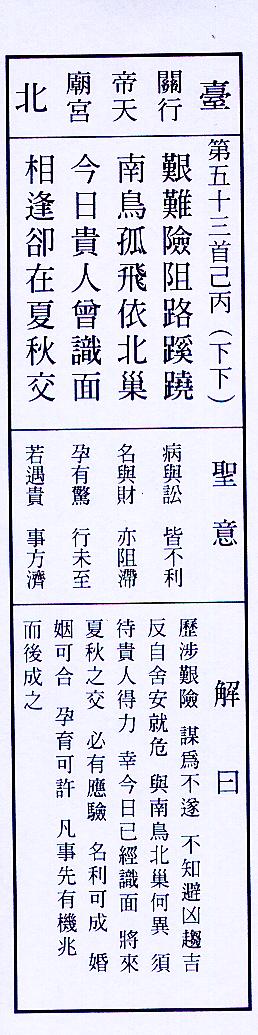 臺
行天宮
關帝廟
北
第五十三首己丙（下下）
艱難險阻路蹊蹺
南鳥孤飛依北巢
今日貴人曾識面
相逢卻在夏秋交
聖意
病與訟　皆不利
名與財　亦阻滯
孕有驚　行未至
若遇貴　事方濟
解曰
歷涉艱險　謀為不遂　不知避凶趨吉
反自舍安就危　與南鳥北巢何異　須
待貴人得力　幸今日已經識面　將來
夏秋之交　必有應驗　名利可成　婚
姻可合　孕育可許　凡事先有機兆
而後成之